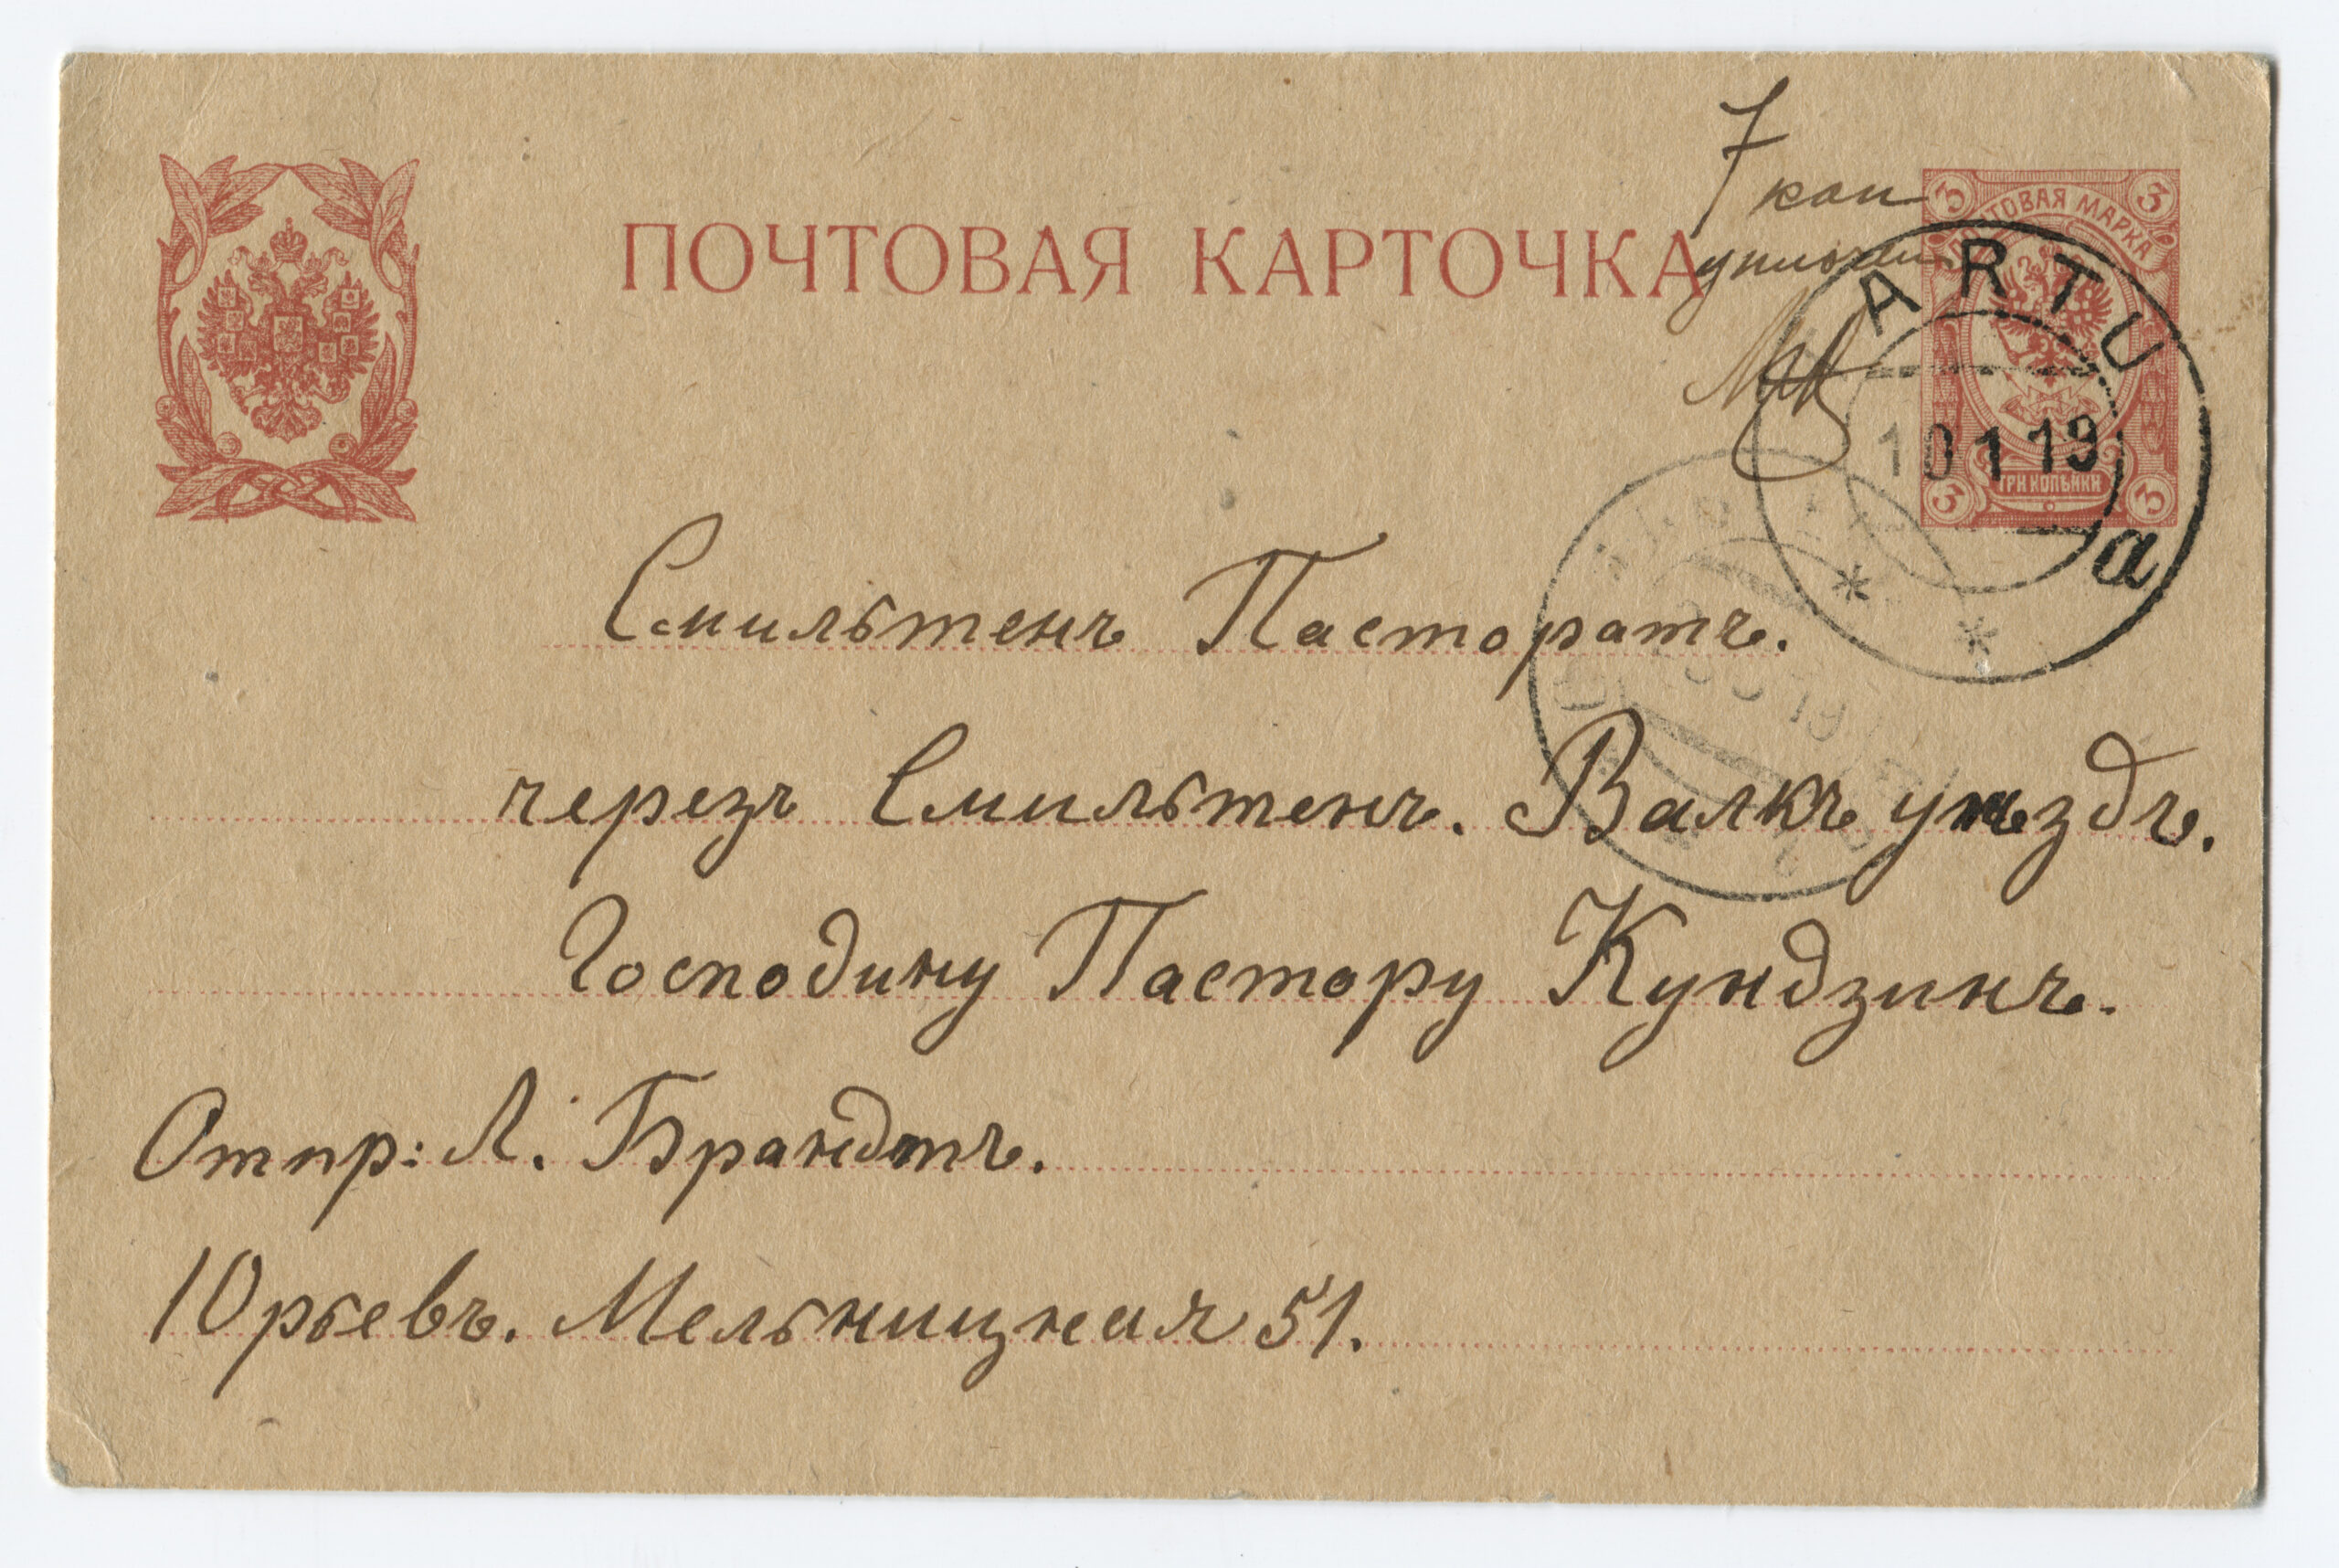 ПОЧТОВАЯ КАРТОЧКА
7 коп
3 3
ПОЧТОВАЯ МАРКА
ТРИ КОПѢЙКИ
3 3
ARTU
10 1 19
a
Смильтенъ Пасторатъ.
черезъ Смильтенъ. Валкъ уѣздъ.
Господину Пастору Кундзинъ.
Отпр: Л. Брандтъ.
Юрьевъ. Мельницкая 51.